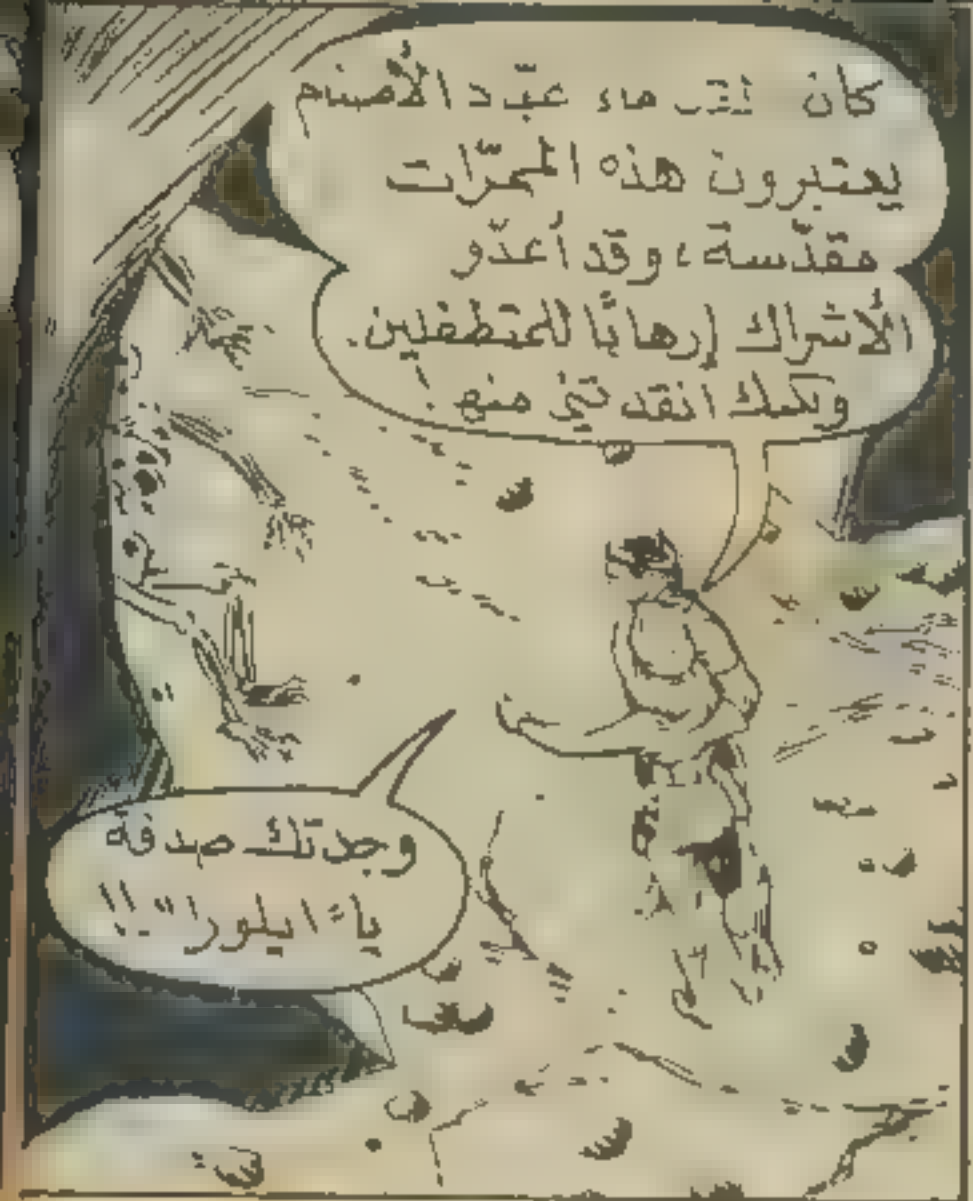 كان عبّد الأصنام
يعتبرون هذه الممرّات
مقدّسة، وقد أعدّو
الأشراك إرهابًا للمتطفلين.
ولكنك انقدتني منها!
وجدتك صدفة
يا "ايلورا"!!